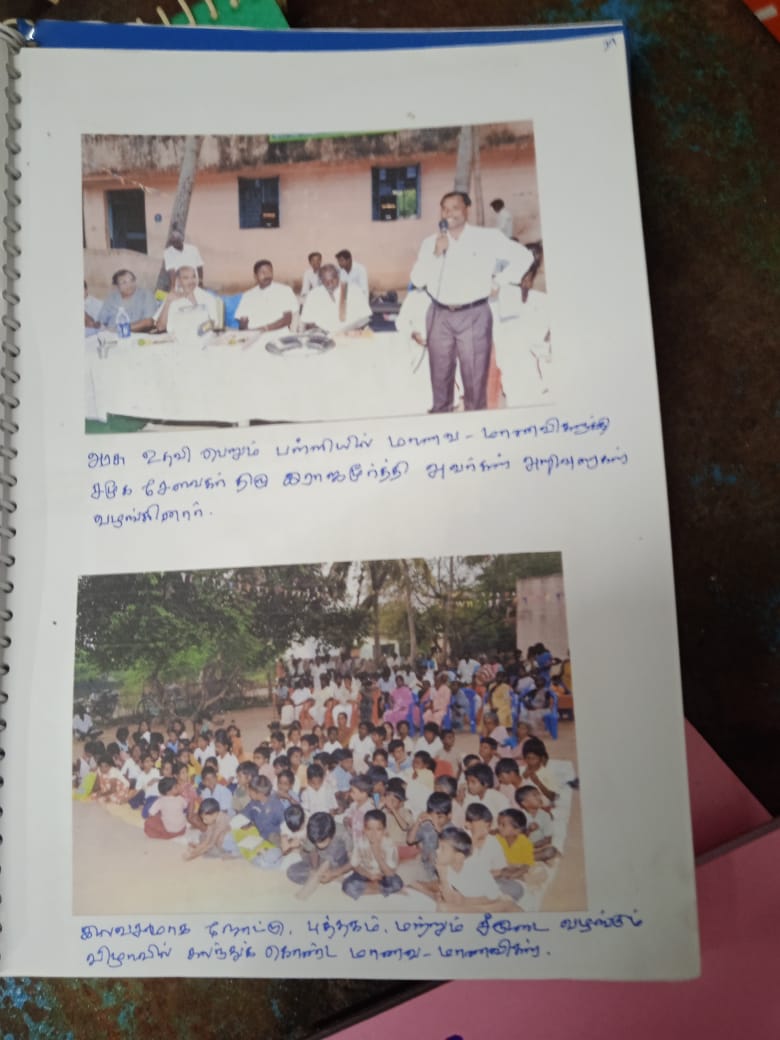 அரசு உதவி பெறும் பள்ளியில் மாணவ - மாணவிகளுக்கு
சமூக சேவகர் திரு இராஜமூர்த்தி அவர்கள் அறிவுரைகள்
வழங்கினார்.
இலவசமாக நோட்டு, புத்தகம், மற்றும் சீருடை வழங்கும்
விழாவில் கலந்துக் கொண்ட மாணவ - மாணவிகள்.